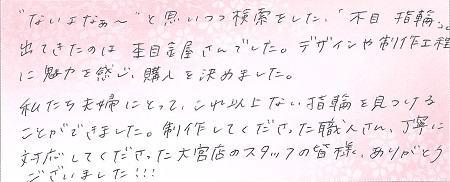 "ないよなぁ〜"と思いつつ検索をした、「木目 指輪」。
出てきたのは 杢目金屋さんでした。デザインや制作工程
に魅力を感じ、購入を決めました。
私たち夫婦にとって、これ以上ない指輪を見つける
ことができました。制作してくださった職人さん、丁寧に
対応してくださった大宮店のスタッフの皆様、ありがとう
ございました!!!